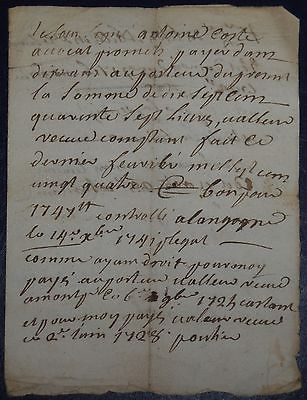 antoine Coste
avocat promets payer dans
dix ans au porteur du present
la somme de dix sept cens
quarente sept livres valleur
receue comptant fait ce
dernier feuvrié mil sept cens
vingt quatre Coste bon pour
1747tt controllé a langogne
le 14e xbre 1741
comme ayant droit pour moy
payés au porteur valleur receue
a le 6e 9bre 1724
et pour moy payés valeur receue
ce 2e Juin 1728